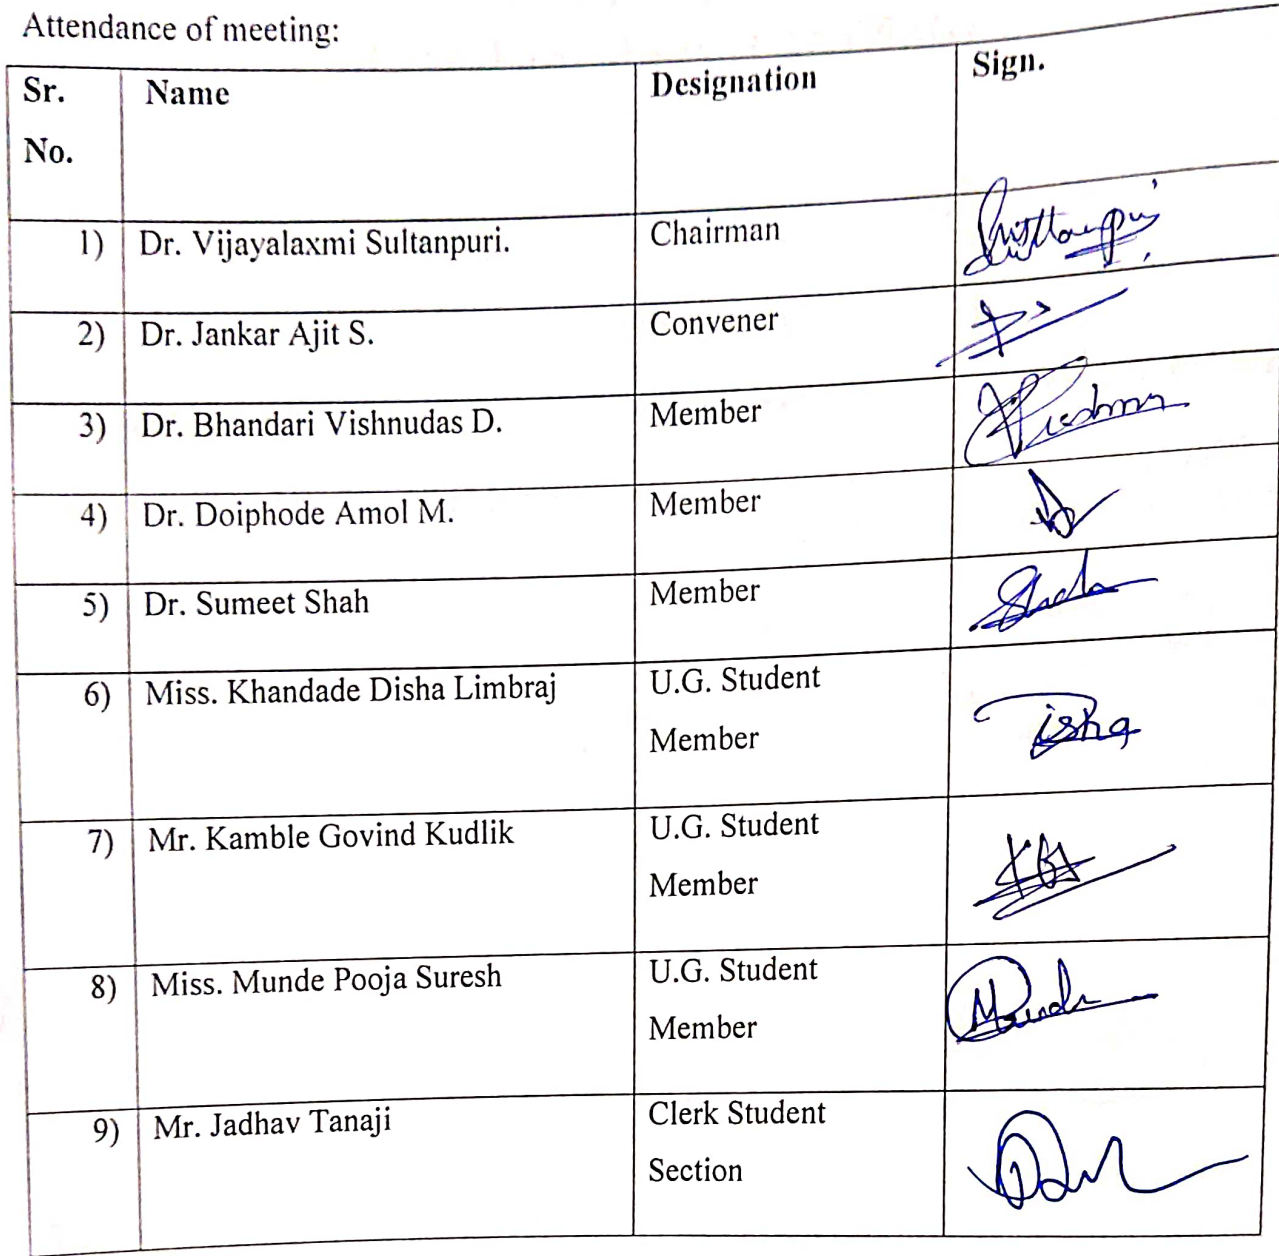 Attendance of meeting:
Sr. No. Name Designation Sign.
1) Dr. Vijayalaxmi Sultanpuri. Chairman
2) Dr. Jankar Ajit S. Convener
3) Dr. Bhandari Vishnudas D. Member
4) Dr. Doiphode Amol M. Member
5) Dr. Sumeet Shah Member
6) Miss. Khandade Disha Limbraj U.G. Student
Member
7) Mr. Kamble Govind Kudlik U.G. Student
Member
8) Miss. Munde Pooja Suresh U.G. Student
Member
9) Mr. Jadhav Tanaji Clerk Student
Section